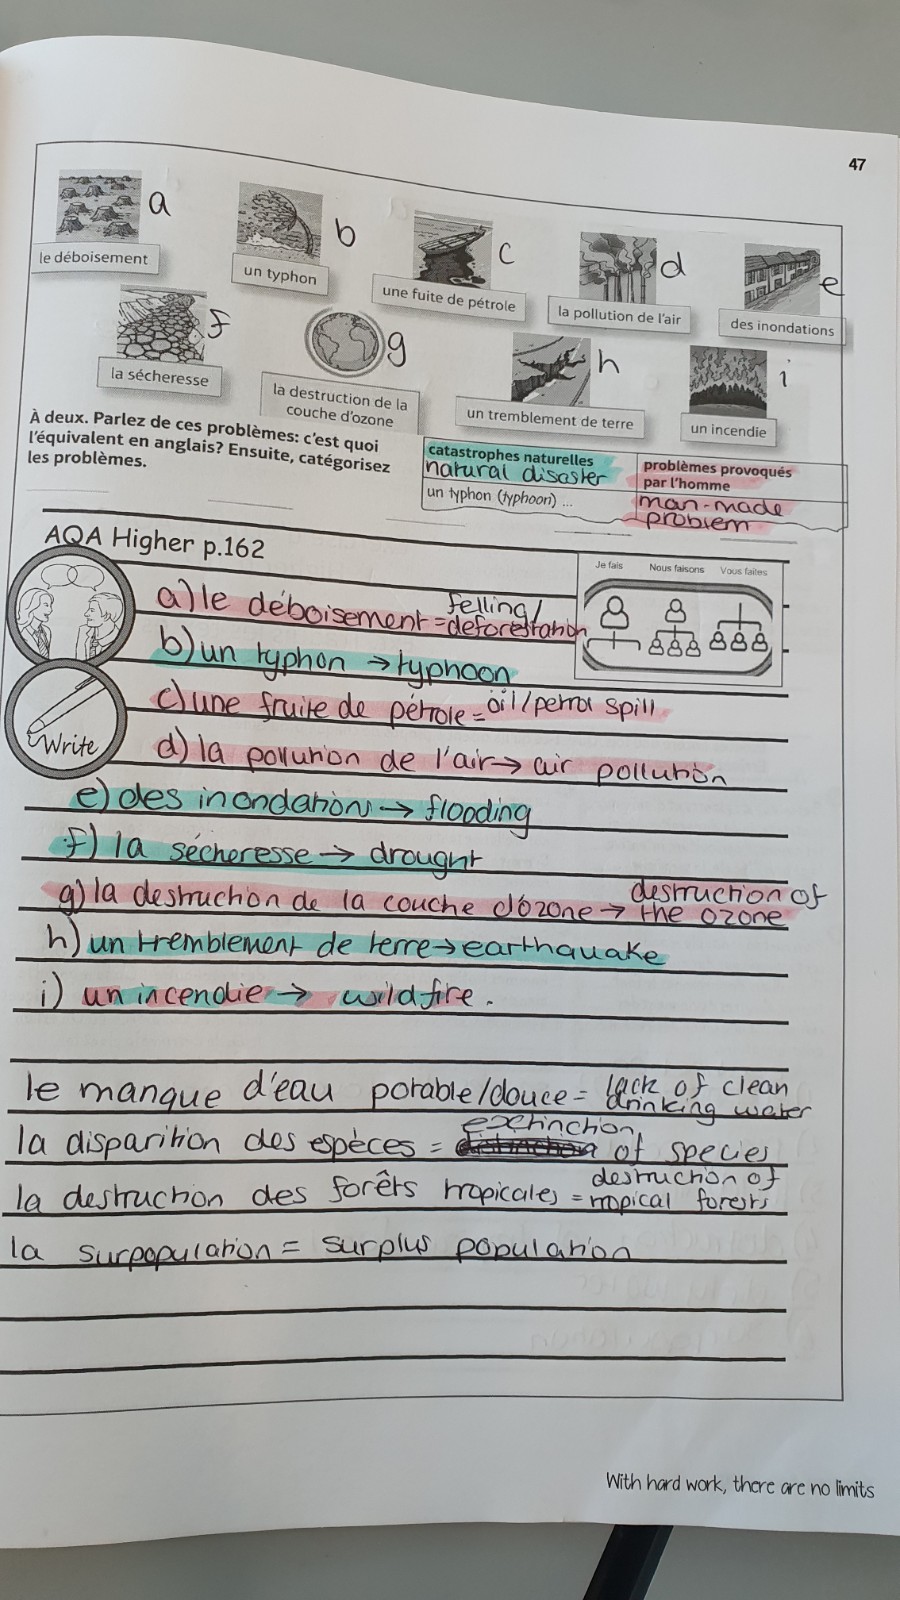 47
a
b
c
d
e
le déboisement
un typhon
une fuite de pétrole
la pollution de l'air
des inondations
f
g
h
i
la sécheresse
la destruction de la
couche d'ozone
un tremblement de terre
un incendie
À deux. Parlez de ces problèmes: c'est quoi
l'équivalent en anglais? Ensuite, catégorisez
les problèmes.
catastrophes naturelles
natural disaster
problèmes provoqués
par l'homme
un typhon (typhoon) ...
man-made
problem
AQA Higher p.162
Je fais Nous faisons Vous faites
felling/
a) le déboisement = deforestation
b) un typhon → typhoon
c) une fruite de pétrole = oil/petrol spill
Write
d) la pollution de l'air → air pollution
e) des inondations → flooding
f) la sécheresse → drought
g) la destruction de la couche d'ozone → destruction of
the ozone
h) un tremblement de terre → earthquake
i) un incendie → wildfire.
le manque d'eau potable/douce = lack of clean
drinking water
la disparition des espèces = extinction of species
la destruction des forêts tropicales = destruction of
tropical forests
la surpopulation = surplus population
With hard work, there are no limits